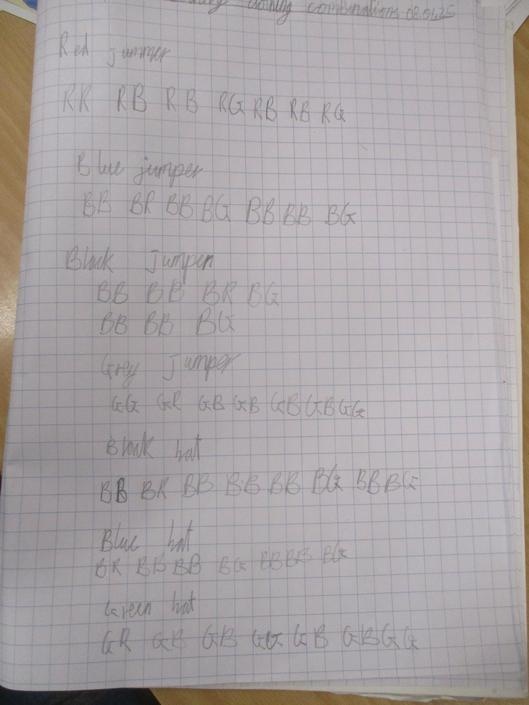 clothing combinations 08.01.25
Red jumper
RR RB RB RG RB RB RG
Blue jumper
BB BR BB BG BB BB BG
Black jumper
BB BB BR BG
BB BB BG
Grey jumper
GG GR GB GB GB GB GG
Black hat
BB BR BB BB BB BG BB BG
Blue hat
BR BB BB BG BB BB BG
Green hat
GR GB GB GG GB GB GG